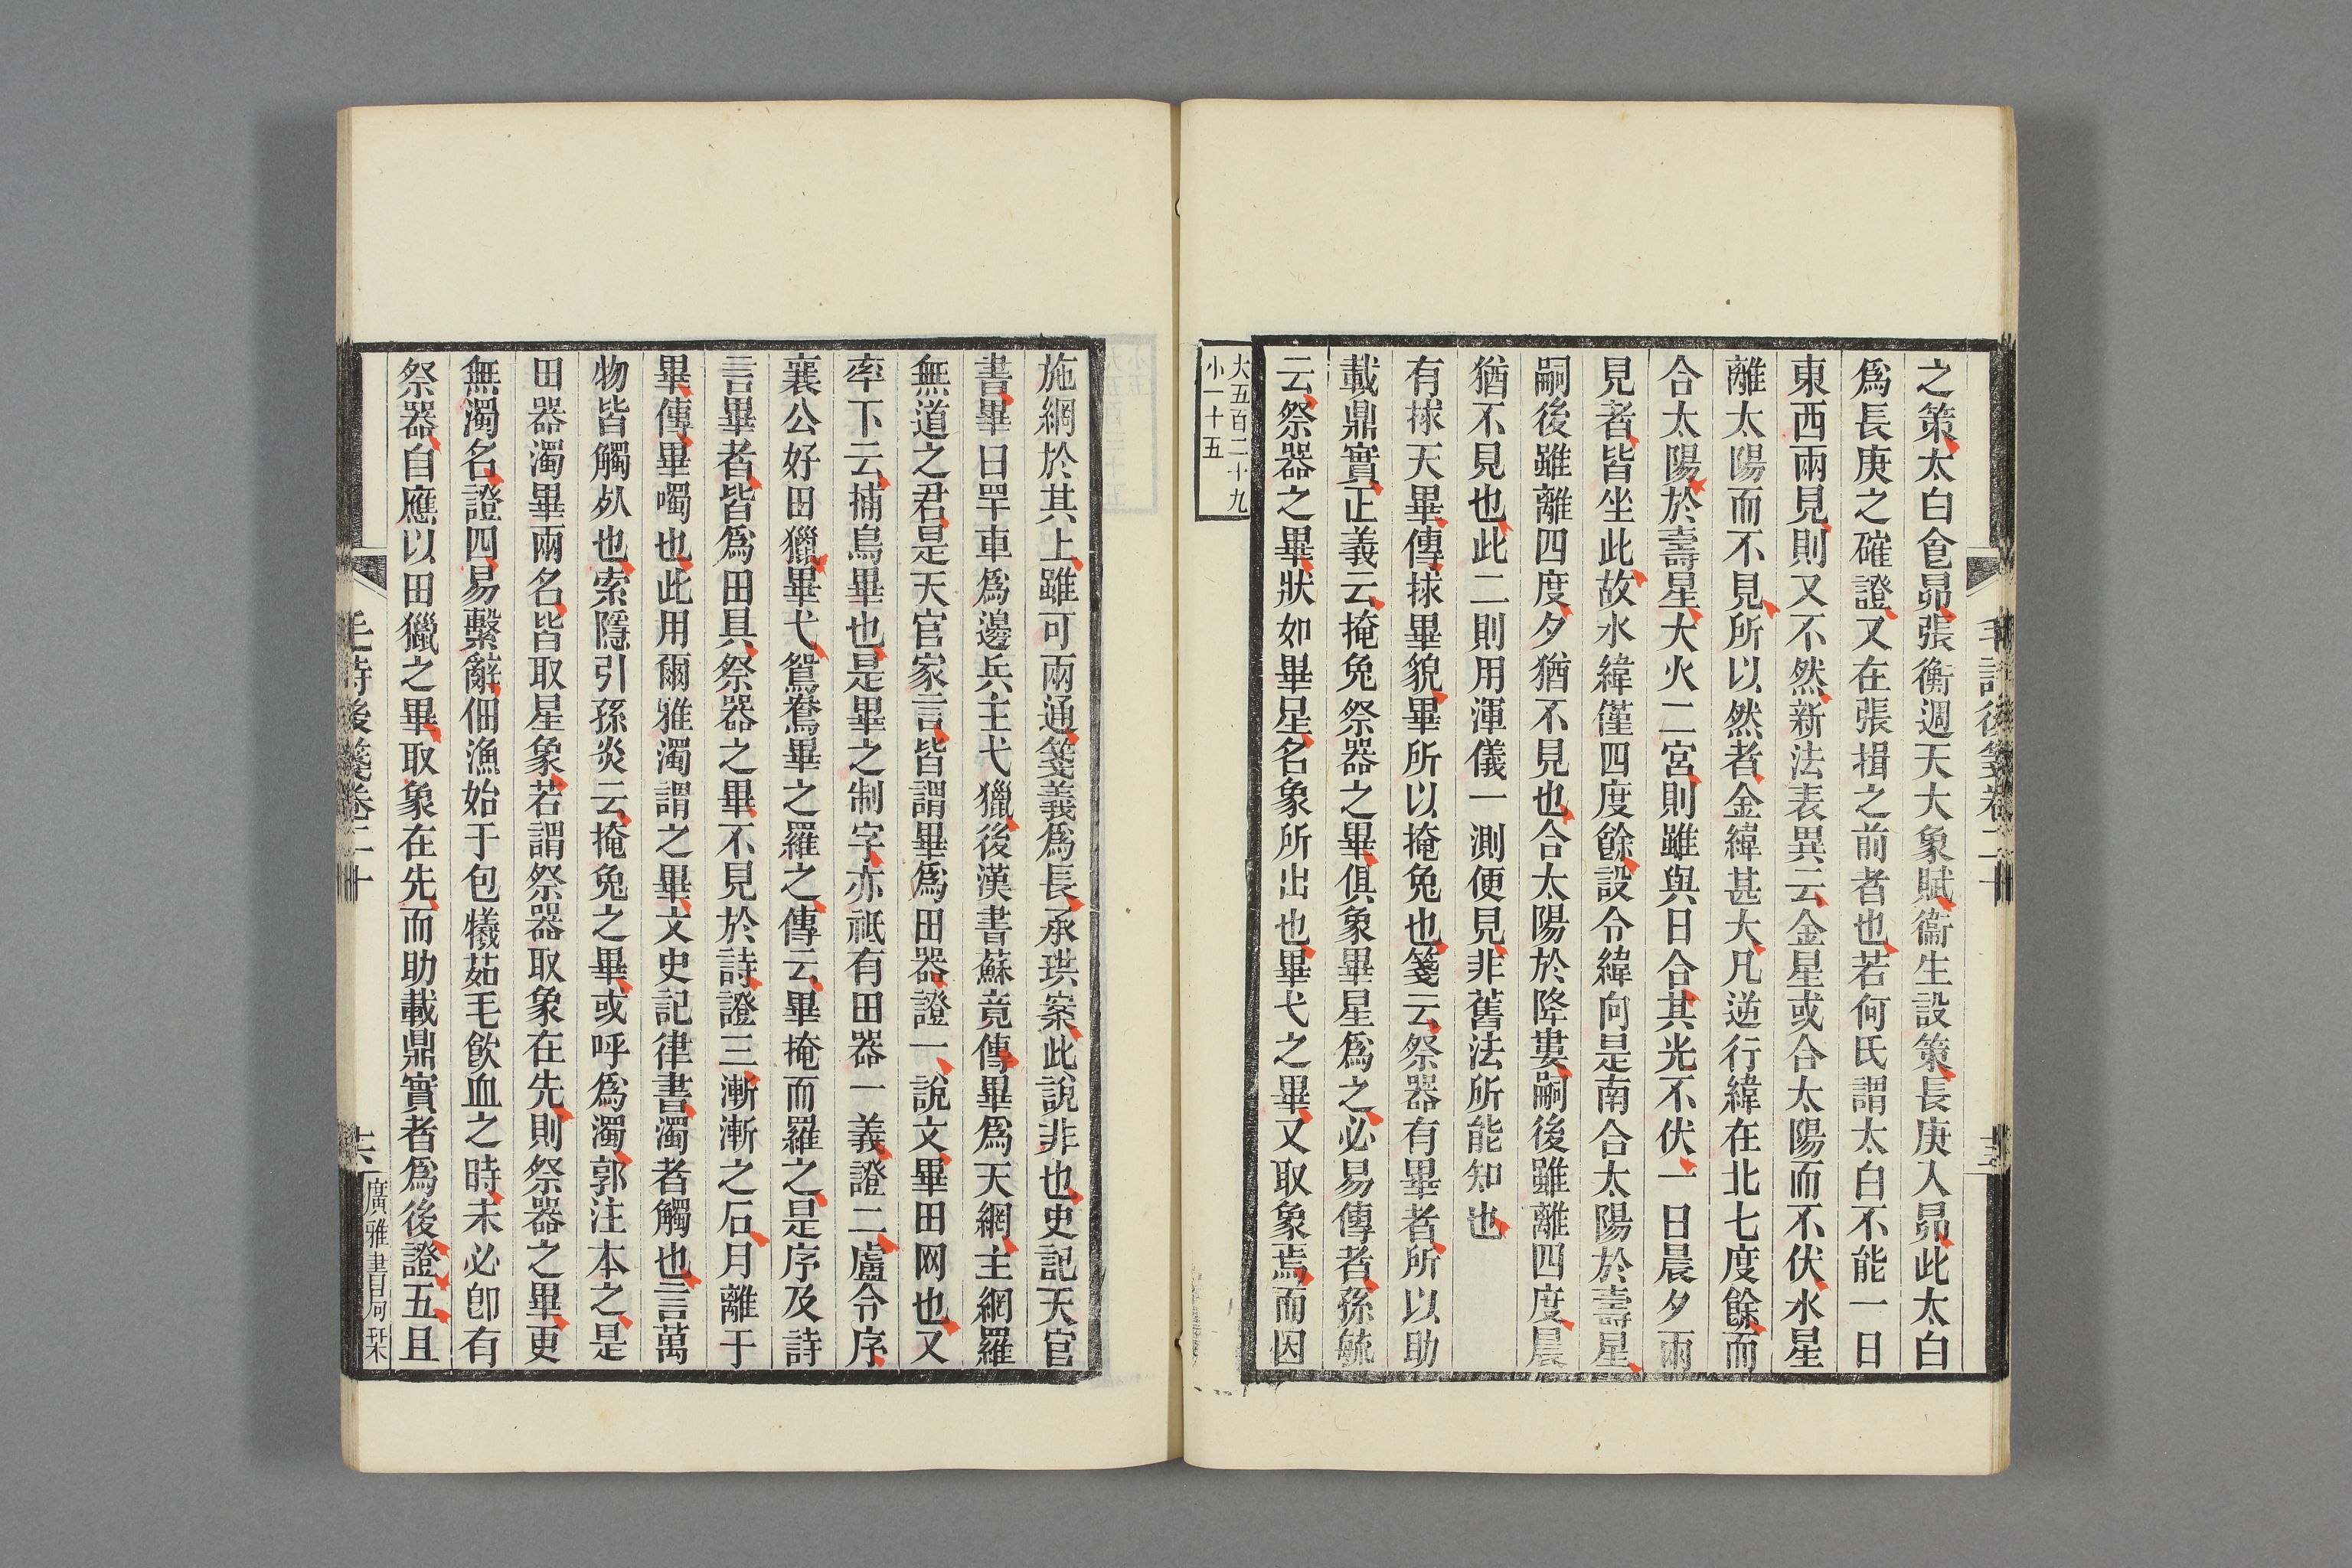 之策太白食昴張衡週天大象賦衞生設策長庚入昴此太白
爲長庚之確證又在張揖之前者也若何氏謂太白不能一日
東西兩見則又不然新法表異云金星或合太陽而不伏水星
離太陽而不見所以然者金緯甚大凡逆行緯在北七度餘而
合太陽於壽星大火二宮則雖與日合其光不伏一日晨夕兩
見者皆坐此故水緯僅四度餘設令緯向是南合太陽於壽星
嗣後雖離四度夕猶不見也合太陽於降婁嗣後雖離四度晨
猶不見也此二則用渾儀一測便見非舊法所能知也
有捄天畢傳捄畢貌畢所以掩兔也箋云祭器有畢者所以助
載鼎實正義云掩兔祭器之畢俱象畢星爲之必易傳者孫毓
云祭器之畢狀如畢星名象所出也畢弋之畢又取象焉而因
大五百二十九
小一十五
施網於其上雖可兩通箋義爲長承珙案此說非也史記天官
書畢曰罕車爲邊兵主弋獵後漢書蘇竟傳畢爲天網主網羅
無道之君是天官家言皆謂畢爲田器證一說文畢田网也又
率下云捕鳥畢也是畢之制字亦祇有田器一義證二盧令序
襄公好田獵畢弋鴛鴦畢之羅之傳云畢掩而羅之是序及詩
言畢者皆爲田具祭器之畢不見於詩證三漸漸之石月離于
畢傳畢噣也此用爾雅濁謂之畢文史記律書濁者觸也言萬
物皆觸死也索隱引孫炎云掩兔之畢或呼爲濁郭注本之是
田器濁畢兩名皆取星象若謂祭器取象在先則祭器之畢更
無濁名證四易繫辭佃漁始于包犧茹毛飮血之時未必卽有
祭器自應以田獵之畢取象在先而助載鼎實者爲後證五且
毛詩後箋卷二十
十六
廣雅書局栞